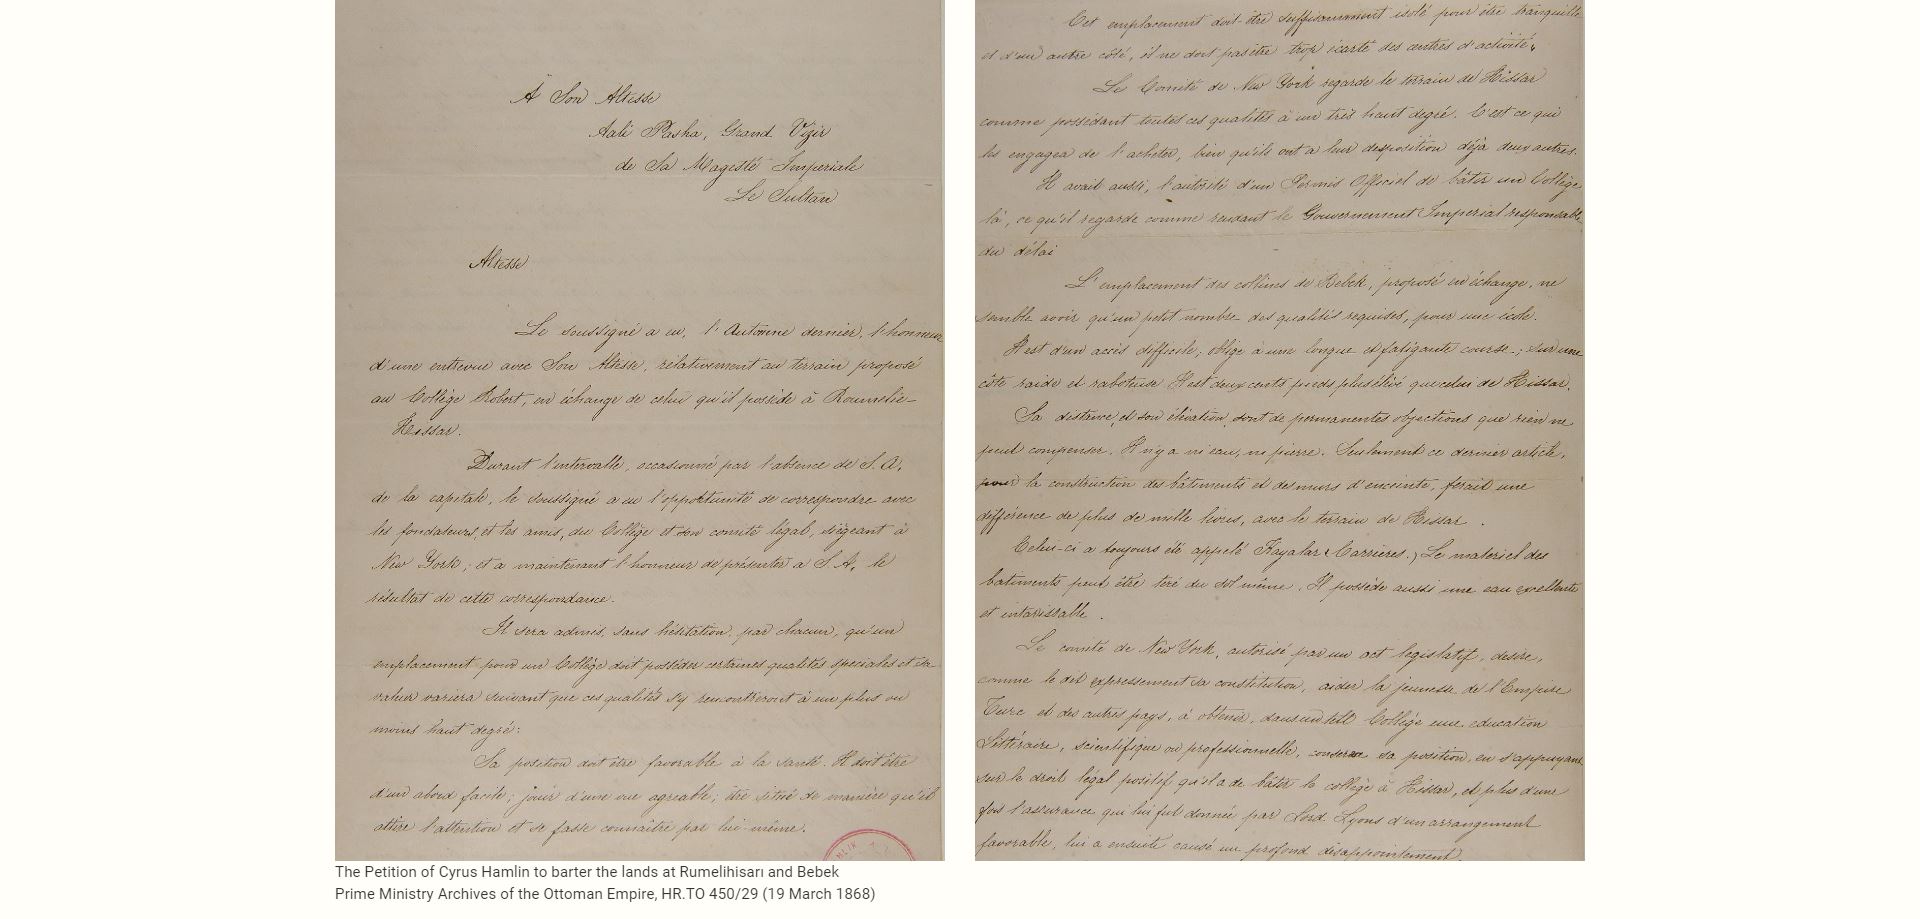 À Son Altesse
Aali Pasha, Grand Vizir
de Sa Magesté Imperiale
Le Sultan
Altesse
Le soussigné a eu, l'Automne dernier, l'honneur
d'une entrevue avec Son Altesse, rélativement au terrain proposé
au Collège Robert, en échange de celui qu'il possède à Roumelie-
Hissar.
Durant l'intervalle, occasionné par l'absence de S. A.
de la capitale, le soussigné a eu l'opportunité de correspondre avec
les fondateurs, et les amis, du Collège et son comité légal, siégeant à
New York; et a maintenant l'honneur de présenter a S. A. le
résultat de cette correspondance.
Il sera admis, sans hésitation, par chacun, qu'un
emplacement pour un Collège doit posséder certaines qualités speciales et sa
valeur variera suivant que ces qualités s'y rencontreront à un plus ou
moins haut degré:
Sa position doit être favorable à la santé. Il doit être
d'un abord facile; jouir d'une vue agréable; être situé de manière qu'il
attire l'attention et se fasse connaître par lui-même.
Cet emplacement doit être suffisamment isolé pour être tranquille
et d'un autre côté, il ne doit pas être trop écarté des centres d'activité.
Le Comité de New York regarde le terrain de Hissar
comme possédant toutes ces qualités à un très haut degré. C'est ce qui
les engagea de l'acheter, bien qu'ils ont a leur desposition déjà deux autres.
Il avait aussi, l'autorité d'un Permis Officiel de bâtir un Collège
là, ce qu'il regarde comme rendant le Gouvernement Imperial responsable
du délai
L'emplacement des collines de Bebek, proposé en échange, ne
semble avoir qu'un petit nombre des qualités requises, pour une école.
Il est d'un accès difficile; oblige à une longue et fatigante course; sur une
côte raide et raboteuse Il est deux cents pieds plus élévé que celui de Hissar.
Sa distance, et son élévation, sont de permanentes objections que rien ne
peut compenser. Il n'y a ni eau, ni pierre. Seulement ce dernier article,
pour la construction des bâtiments et des murs d'enceinte, ferait une
différence de plus de mille livres, avec le terrain de Hissar.
Celui-ci a toujours été appelé Kayalar (Carrières.) Le materiel des
batiments peut être tiré du sol même. Il possède aussi une eau excellente
et intarissable.
Le comité de New York, autorisé par un act legislatif, desire,
comme le dit expressement sa constitution, aider la jeunesse de l'Empire
Turc et des autres pays, à obtenir, dans un tell Collège une education
Littéraire, scientifique ou professionnelle, conserve sa position, en s'appuyant
sur le droit légal positif qu'il a de bâtir le collège à Hissar, et plus d'une
fois l'assurance qui lui fut donnée par Lord Lyons d'un arrangement
favorable, lui a ensuite causé un profond désappointement.
The Petition of Cyrus Hamlin to barter the lands at Rumelihisarı and Bebek
Prime Ministry Archives of the Ottoman Empire, HR.TO 450/29 (19 March 1868)